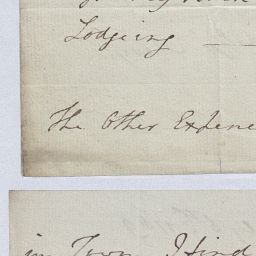 Lodgeing
The Other Expence
in Town I find